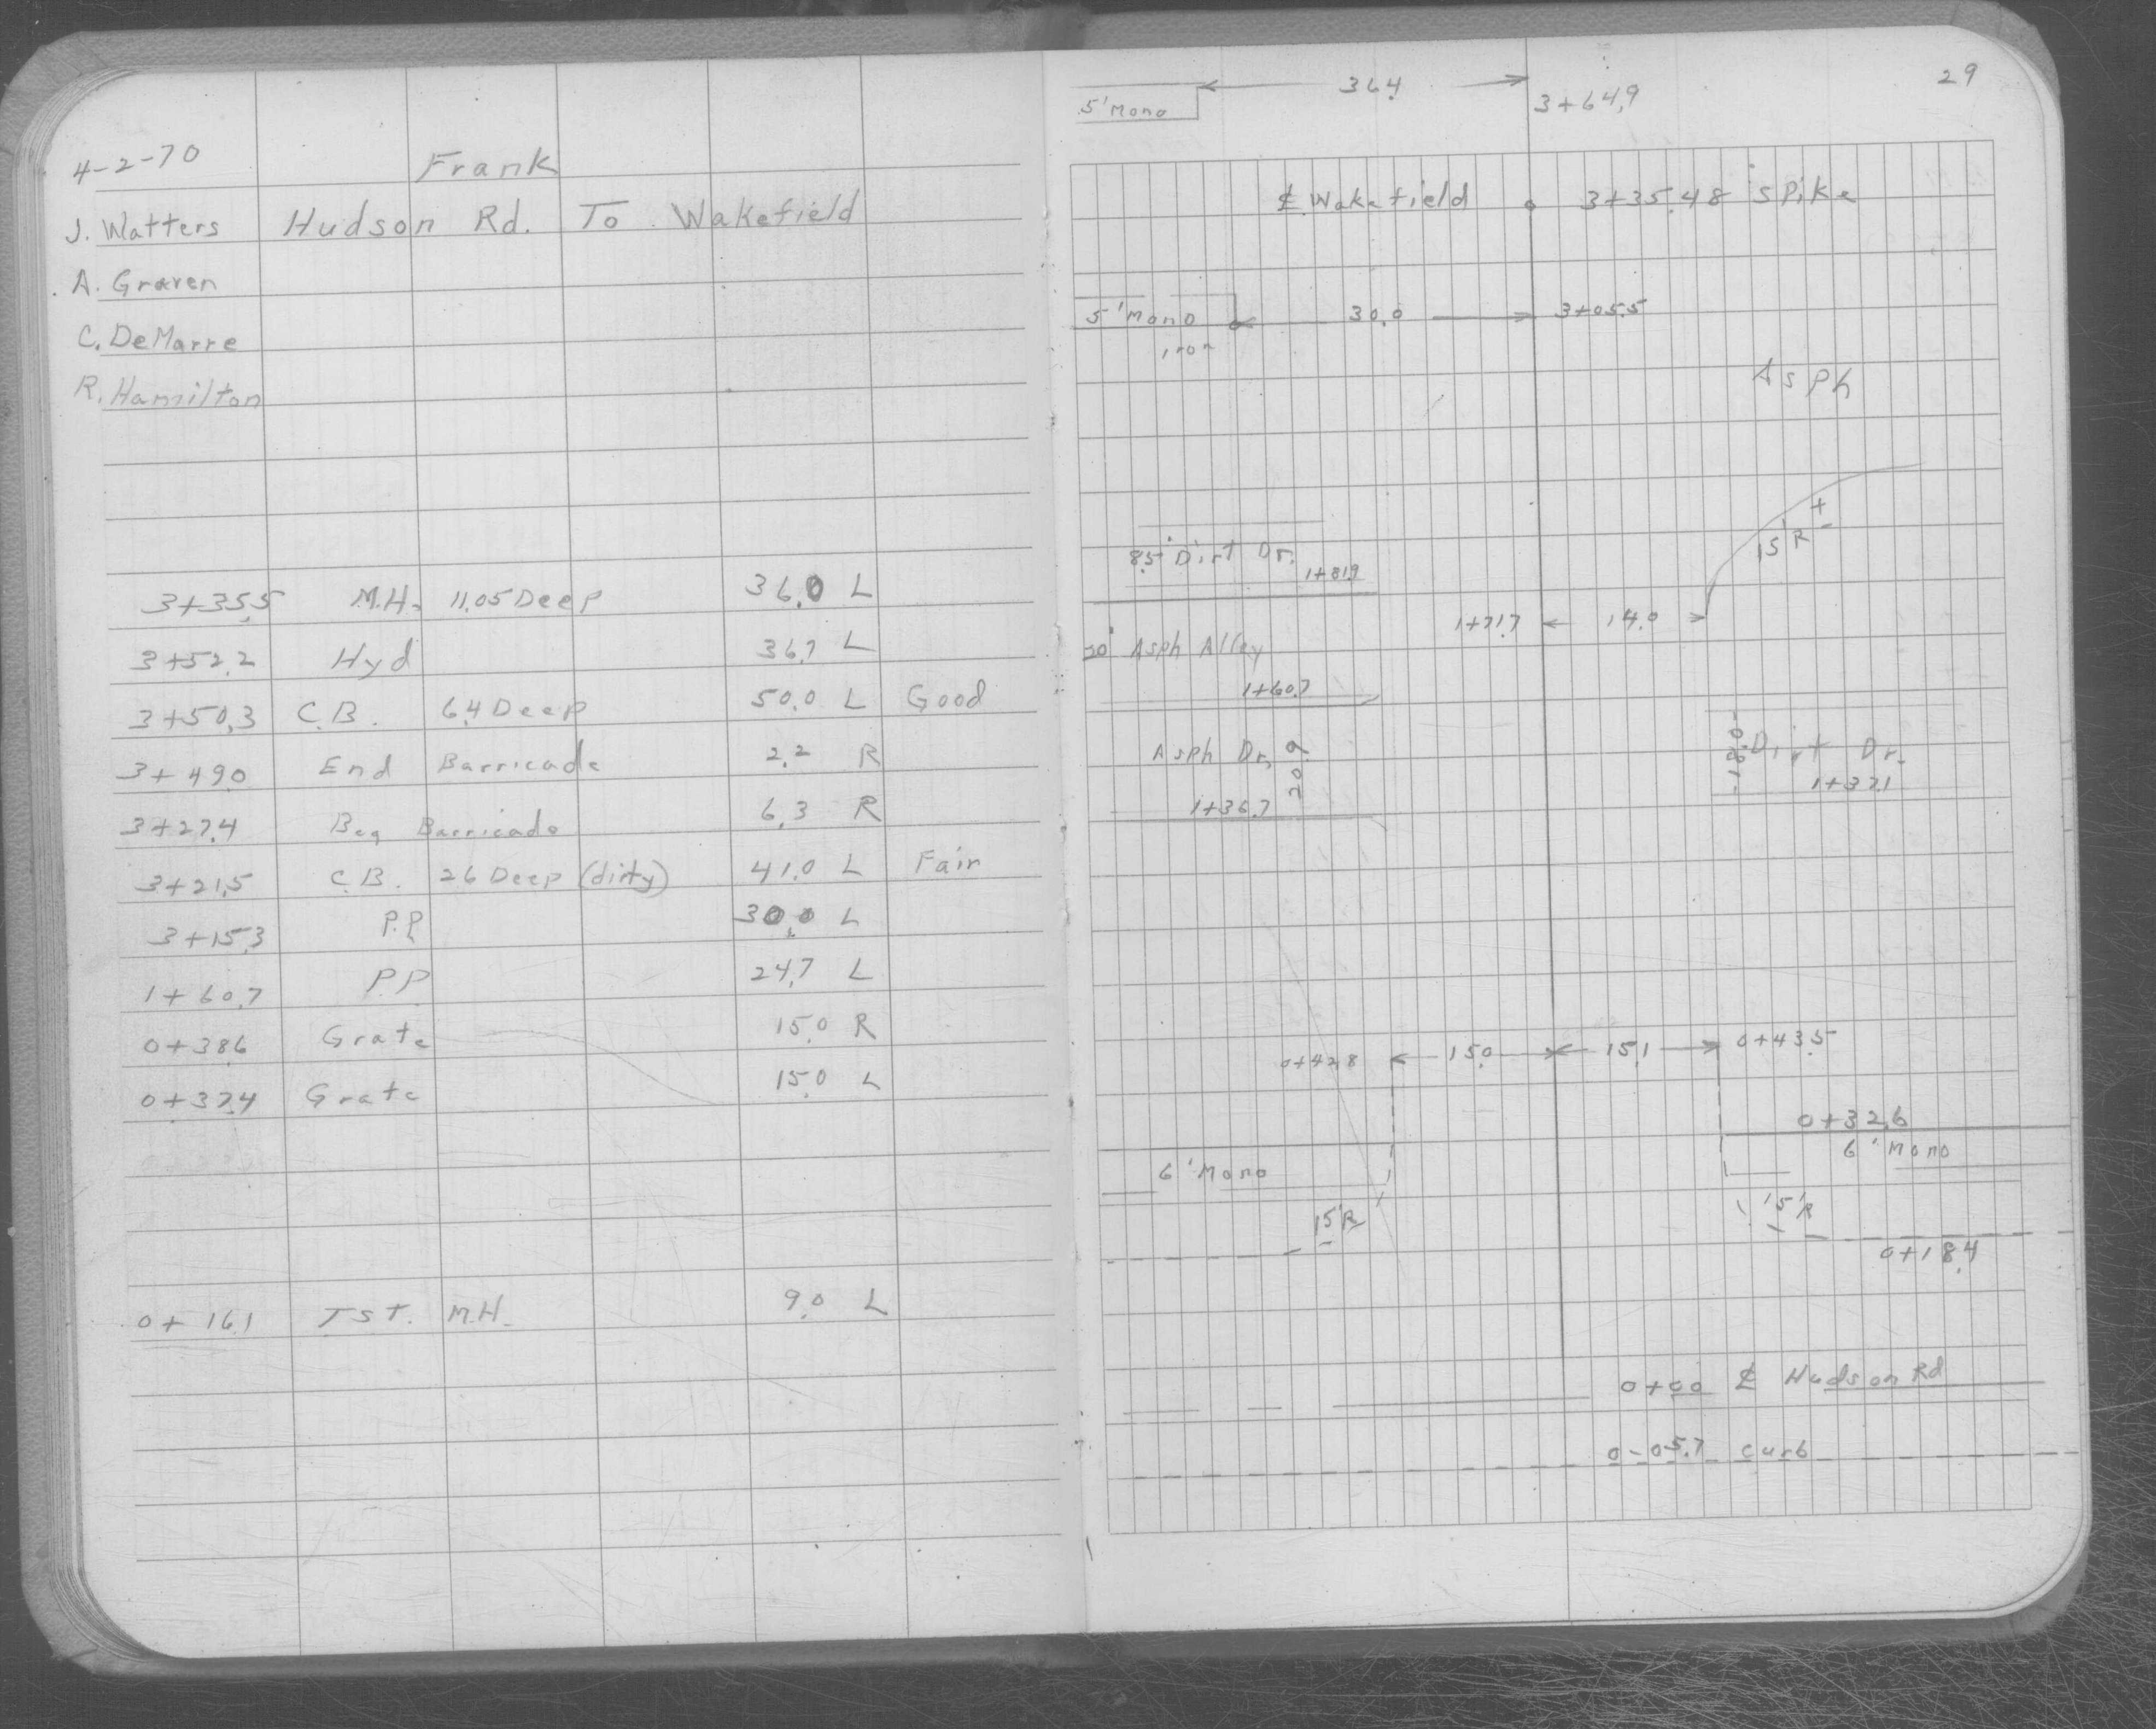 4-2-70 Frank
J. Watters Hudson Rd. To Wakefield
A. Graven
C. DeMarre
R. Hamilton
3+35.5 M.H. 11.05 Deep 36.0 L
3+52.2 Hyd 36.7 L
3+50.3 C.B. 6.4 Deep 50.0 L Good
3+49.0 End Barricade 2.2 R
3+27.4 Beg Barricade 6.3 R
3+21.5 C.B. 2.6 Deep (dirty) 41.0 L Fair
3+15.3 P.P. 30.0 L
1+60.7 PP 24.7 L
0+38.6 Grate 15.0 R
0+37.4 Grate 15.0 L
0+16.1 TST. M.H. 9.0 L
29
36.4
5' Mono 3+64.9
℄ Wakefield 3+35.48 Spike
5' Mono 30.0 3+05.5
iron
Asph
15'R ±
8.5' Dirt Dr.
1+81.9
1+71.7 14.0
20' Asph Alley
1+60.7
Asph Dr. 20.9 18.0 Dirt Dr.
1+36.7 1+37.1
0+42.8 15.0 15.1 0+43.5
0+32.6
6' Mono 6' Mono
15'R 15'R
0+18.4
0+00 ℄ Hudson Rd
0-05.7 curb